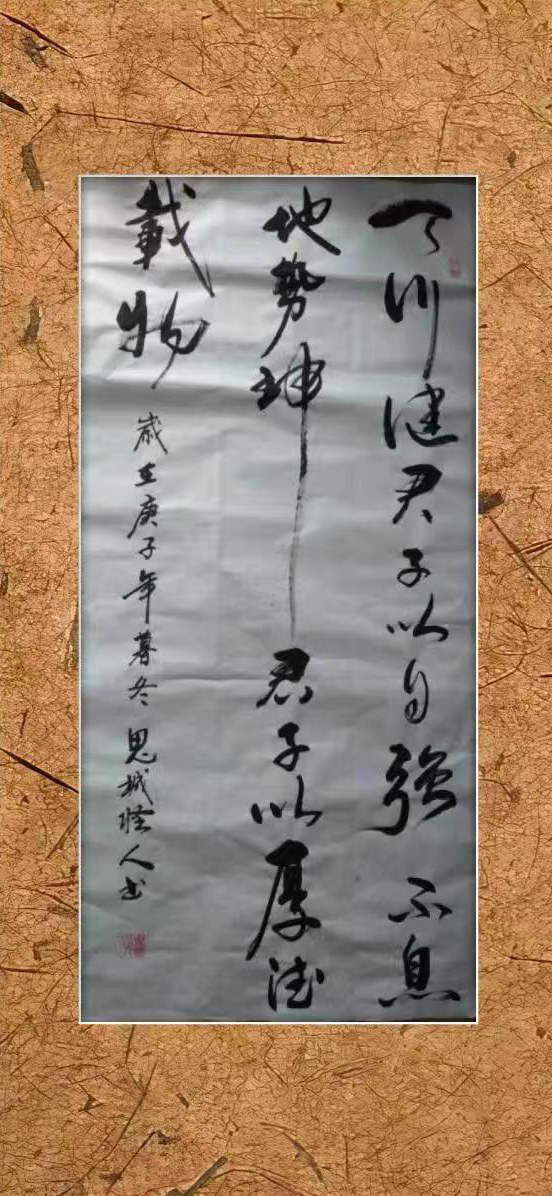 天行健君子以自強不息
地势坤君子以厚德
載物
歲在庚子年暮冬思城怪人书